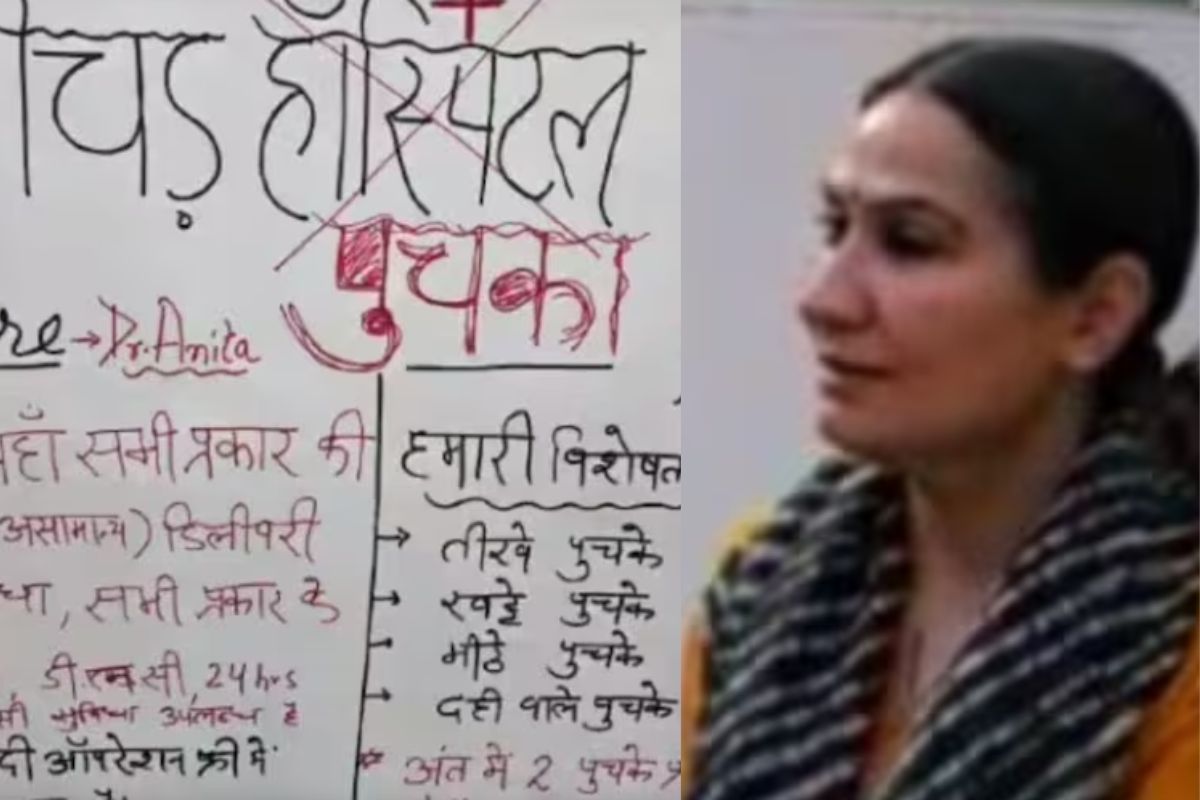 चड़ हॉस्पिटल
पुचका
re → Dr. Anita
हाँ सभी प्रकार की
असामान्य) डिलीवरी
था, सभी प्रकार के
डी.एन.सी, 24 hrs
सुविधा उपलब्ध है
दी ऑपरेशन फ्री में
हमारी विशेषत
→ तीखे पुचके
→ खट्टे पुचके
→ मीठे पुचके
→ दही वाले पुचके
* अंत में 2 पुचके